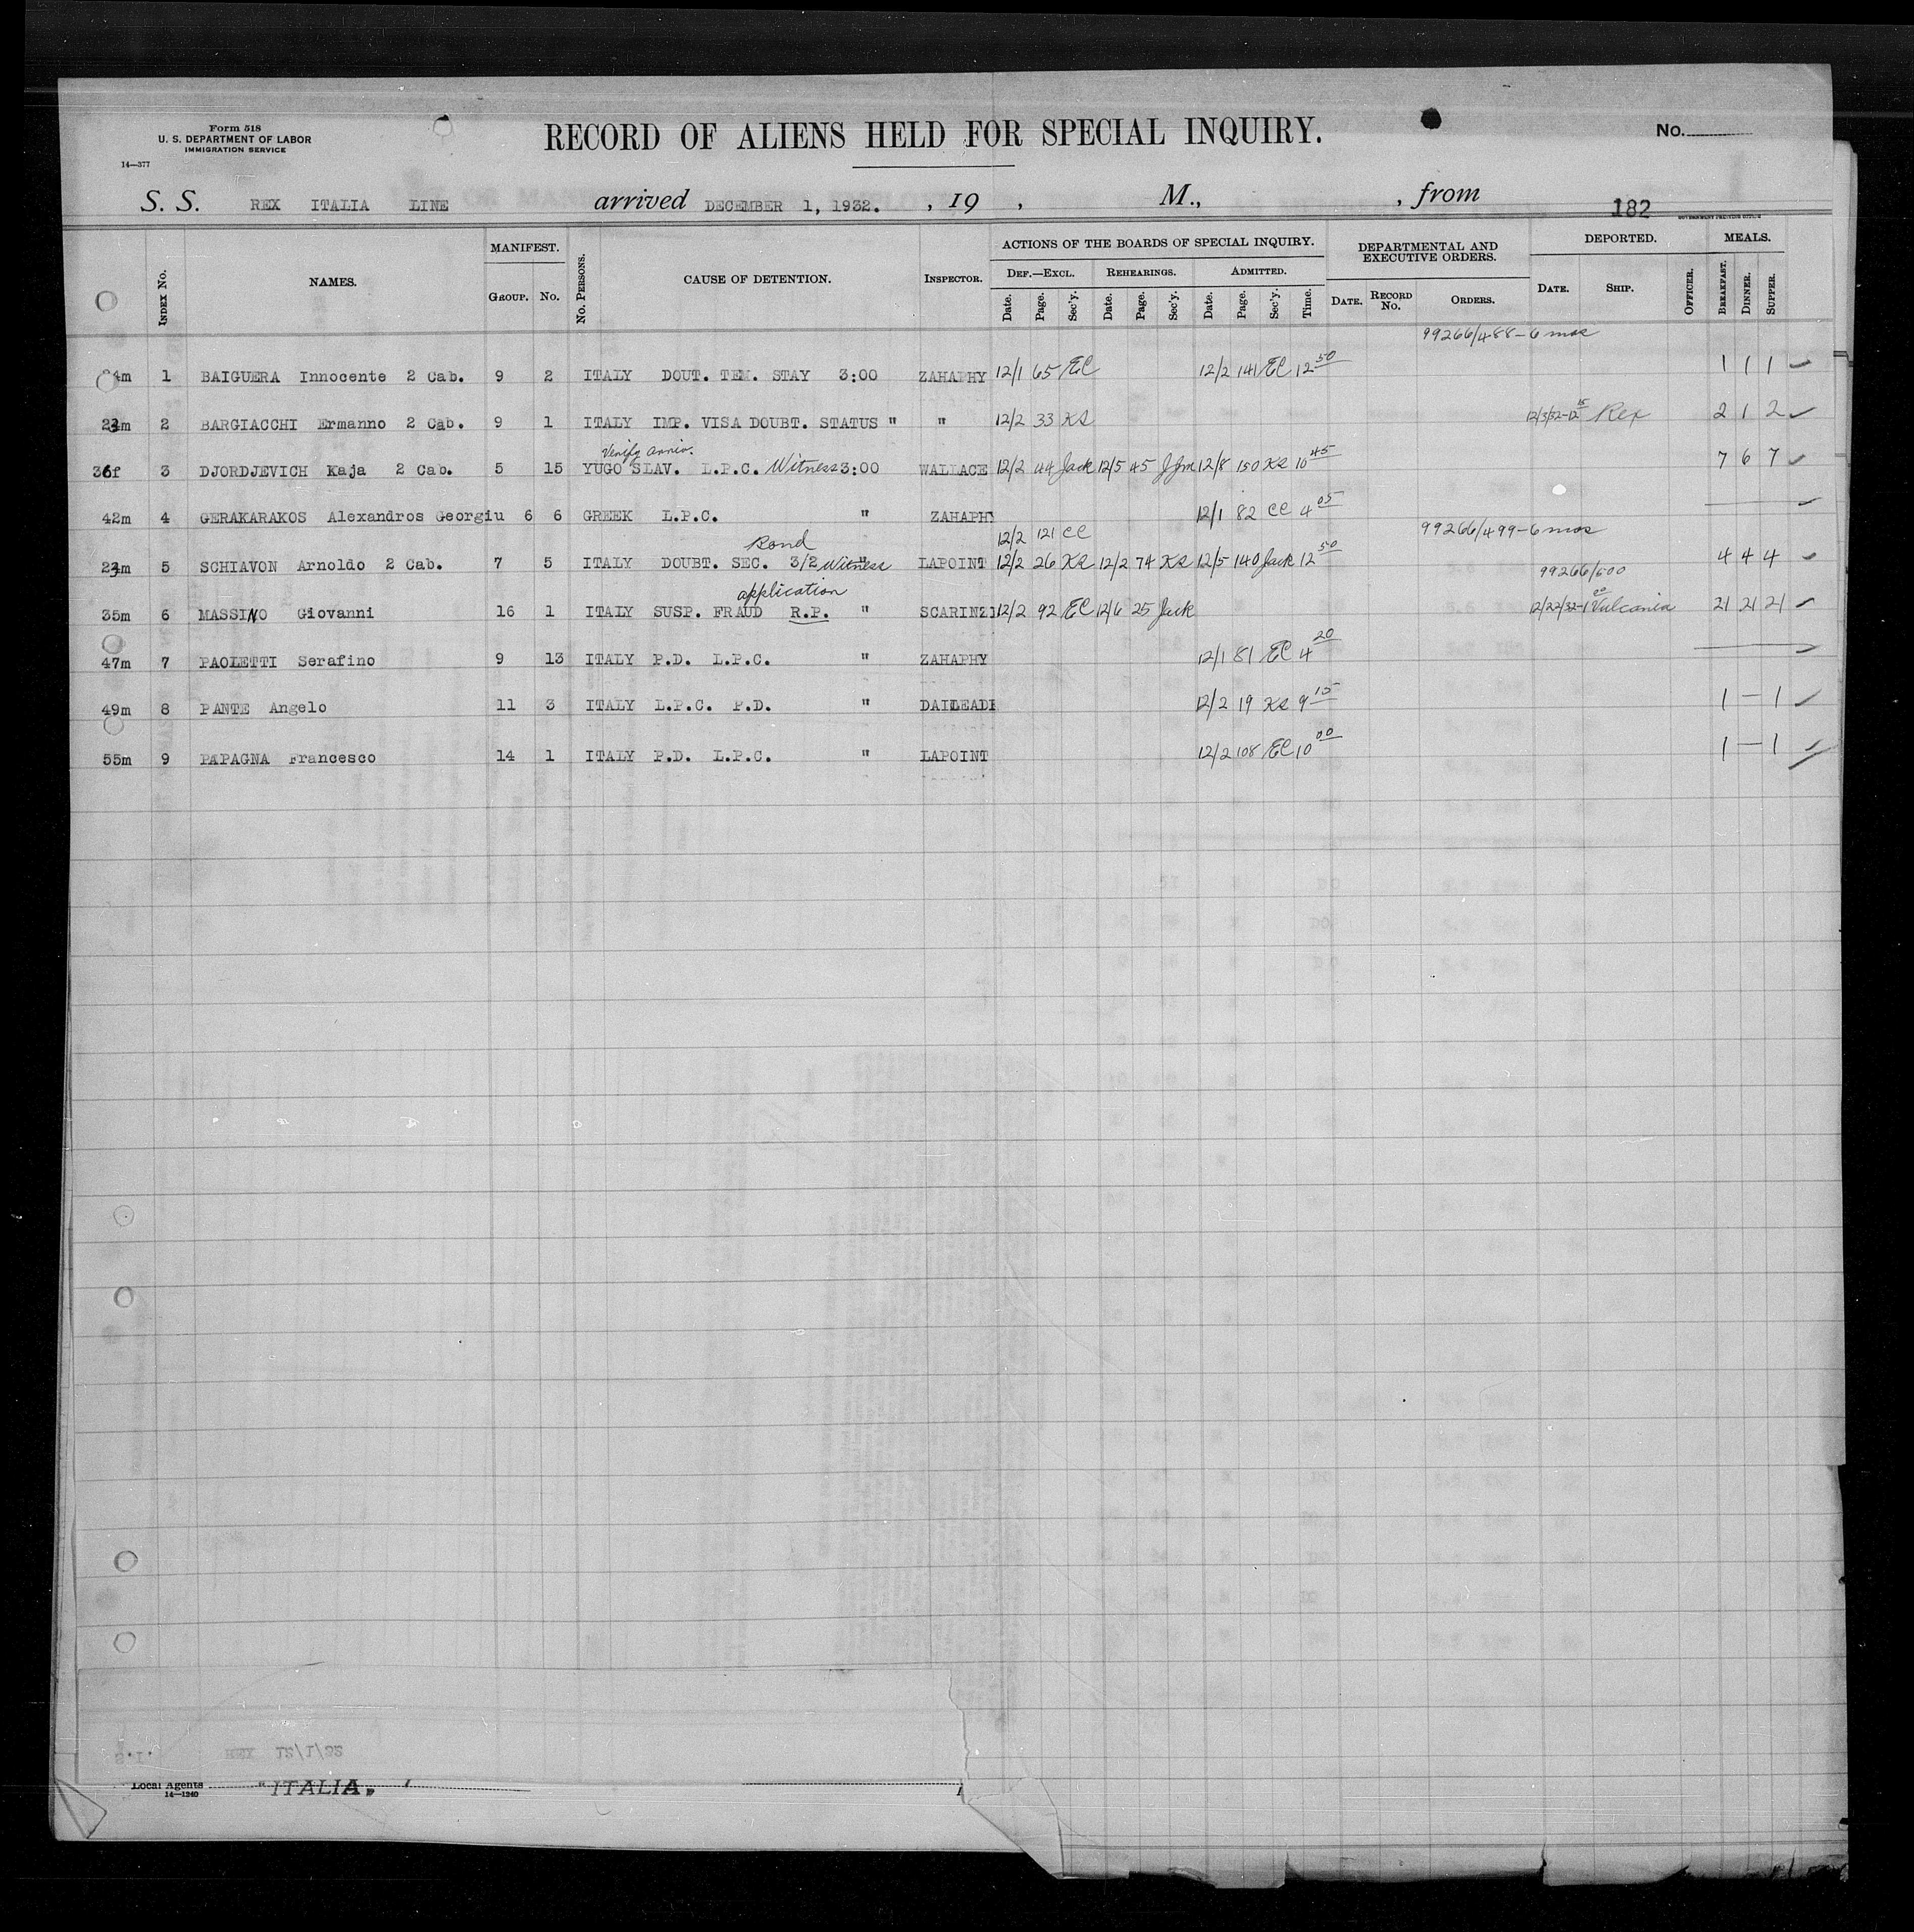 Form 518
U. S. DEPARTMENT OF LABOR
IMMIGRATION SERVICE
14—377
RECORD OF ALIENS HELD FOR SPECIAL INQUIRY.
No.
S. S. REX ITALIA LINE arrived DECEMBER 1, 1932. , 19 , M., , from 182
GOVERNMENT PRINTING OFFICE
MANIFEST. ACTIONS OF THE BOARDS OF SPECIAL INQUIRY. DEPARTMENTAL AND EXECUTIVE ORDERS. DEPORTED. MEALS.
INDEX No. NAMES. GROUP. No. No. PERSONS. CAUSE OF DETENTION. INSPECTOR. DEF.—EXCL. REHEARINGS. ADMITTED.
Date. Page. Sec'y. Date. Page. Sec'y. Date. Page. Sec'y. Time. DATE. RECORD No. ORDERS. DATE. SHIP. OFFICER. BREAKFAST. DINNER. SUPPER.
99266/488-6 mos
4m 1 BAIGUERA Innocente 2 Cab. 9 2 ITALY DOUT. TEM. STAY 3:00 ZAHAPHY 12/1 65 EC 12/2 141 EC 12 50 1 1 1
23m 2 BARGIACCHI Ermanno 2 Cab. 9 1 ITALY IMP. VISA DOUBT. STATUS " " 12/2 33 KS 12/3/32-12 15 Rex 2 1 2
Verify
36f 3 DJORDJEVICH Kaja 2 Cab. 5 15 YUGO SLAV. L.P.C. Witness 3:00 WALLACE 12/2 44 Jack 12/5 45 JJm 12/8 150 KS 10 45 7 6 7
42m 4 GERAKARAKOS Alexandros Georgiu 6 6 GREEK L.P.C. " ZAHAPHY 12/1 82 CC 4 05
12/2 121 CC 99266/499-6 mos
Bond
23m 5 SCHIAVON Arnoldo 2 Cab. 7 5 ITALY DOUBT. SEC. 3/2 Witness " LAPOINT 12/2 26 KS 12/2 74 KS 12/5 140 Jack 12 50 4 4 4
99266/500
application
35m 6 MASSINO Giovanni 16 1 ITALY SUSP. FRAUD R.P. " SCARINZI 12/2 92 EC 12/6 25 Jack 12/22/32-1 00 Vulcania 21 21 21
47m 7 PAOLETTI Serafino 9 13 ITALY P.D. L.P.C. " ZAHAPHY 12/1 81 EC 4 20
49m 8 PANTE Angelo 11 3 ITALY L.P.C. P.D. " DAILEADE 12/2 19 KS 9 15 1 — 1
55m 9 PAPAGNA Francesco 14 1 ITALY P.D. L.P.C. " LAPOINT 12/2 108 EC 10 00 1 — 1
S.I. REX 12/1/32
Local Agents "ITALIA"
14—1240